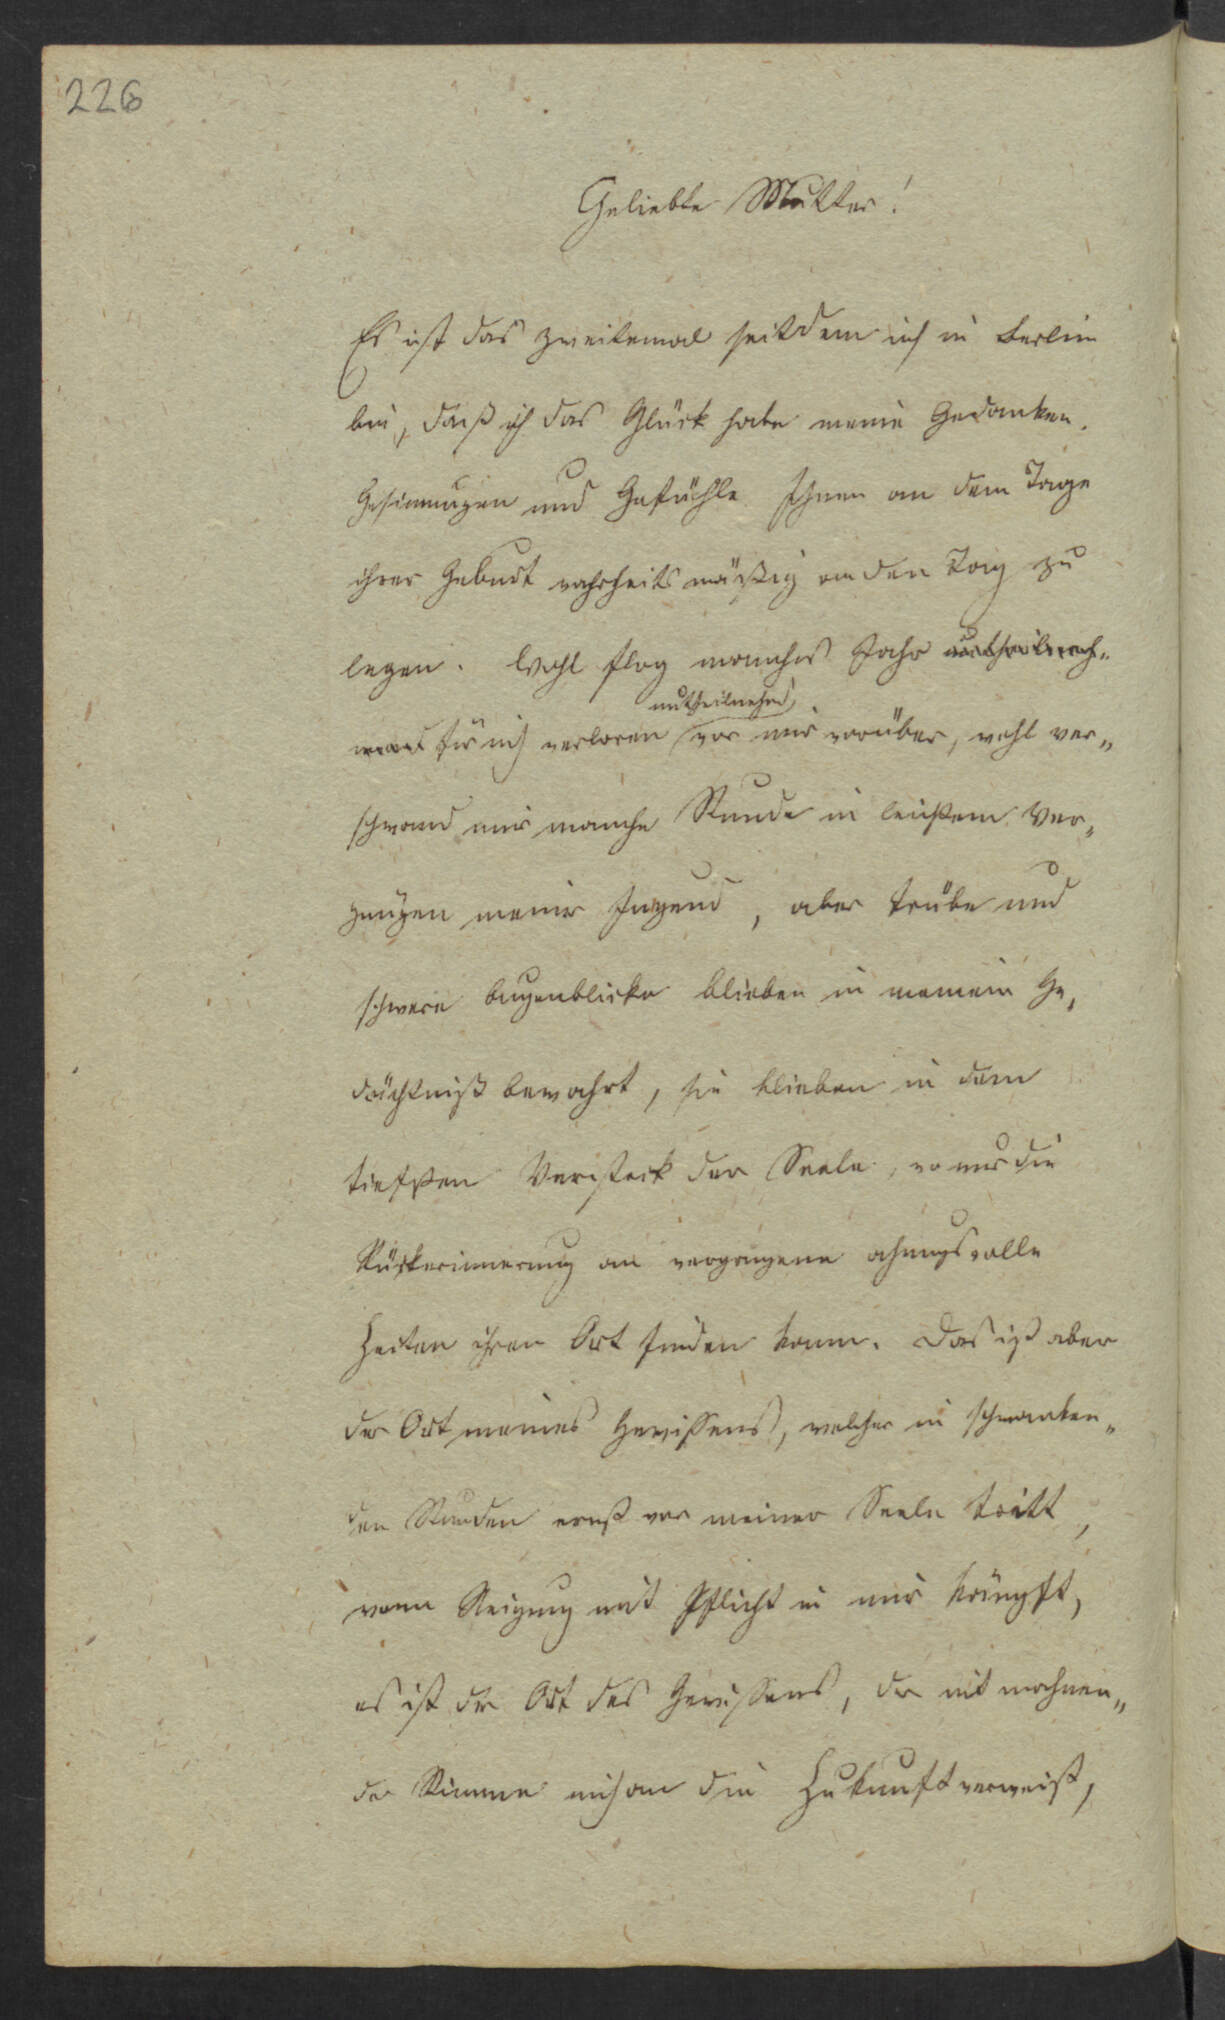 226
Geliebte Mutter!
Es ist das zweitemal seitdem ich in Berlin
bin, daß ich das Glück habe meine Gedanken,
Gesinnungen und Gefühle Ihnen an dem Tage
ihrer Geburt wahrheitsmäßig an den Tag zu
legen. Wohl flog manches Jahr
mittheilnehmend
für mich verloren vor mir vorüber, wohl ver„
schwand mir manche Stunde in leichtem Ver„
gnügen meiner Jugend, aber trübe und
schwere Augenblicke blieben in meinem Ge„
dächtniß bewahrt, sie blieben in dem
tiefsten Versteck der Seele, wo nur die
Rückerinnerung an vergangene ahnungsvolle
Zeiten ihren Ort finden kann. Das ist aber
der Ort meines Gewissens, welcher in schwanken„
den Stunden ernst vor meiner Seele tritt,
wenn Neigung mit Pflicht in mir kämpft,
es ist der Ort des Gewissens, der mit mahnen„
der Stimme mich an die Zukunft verweist,